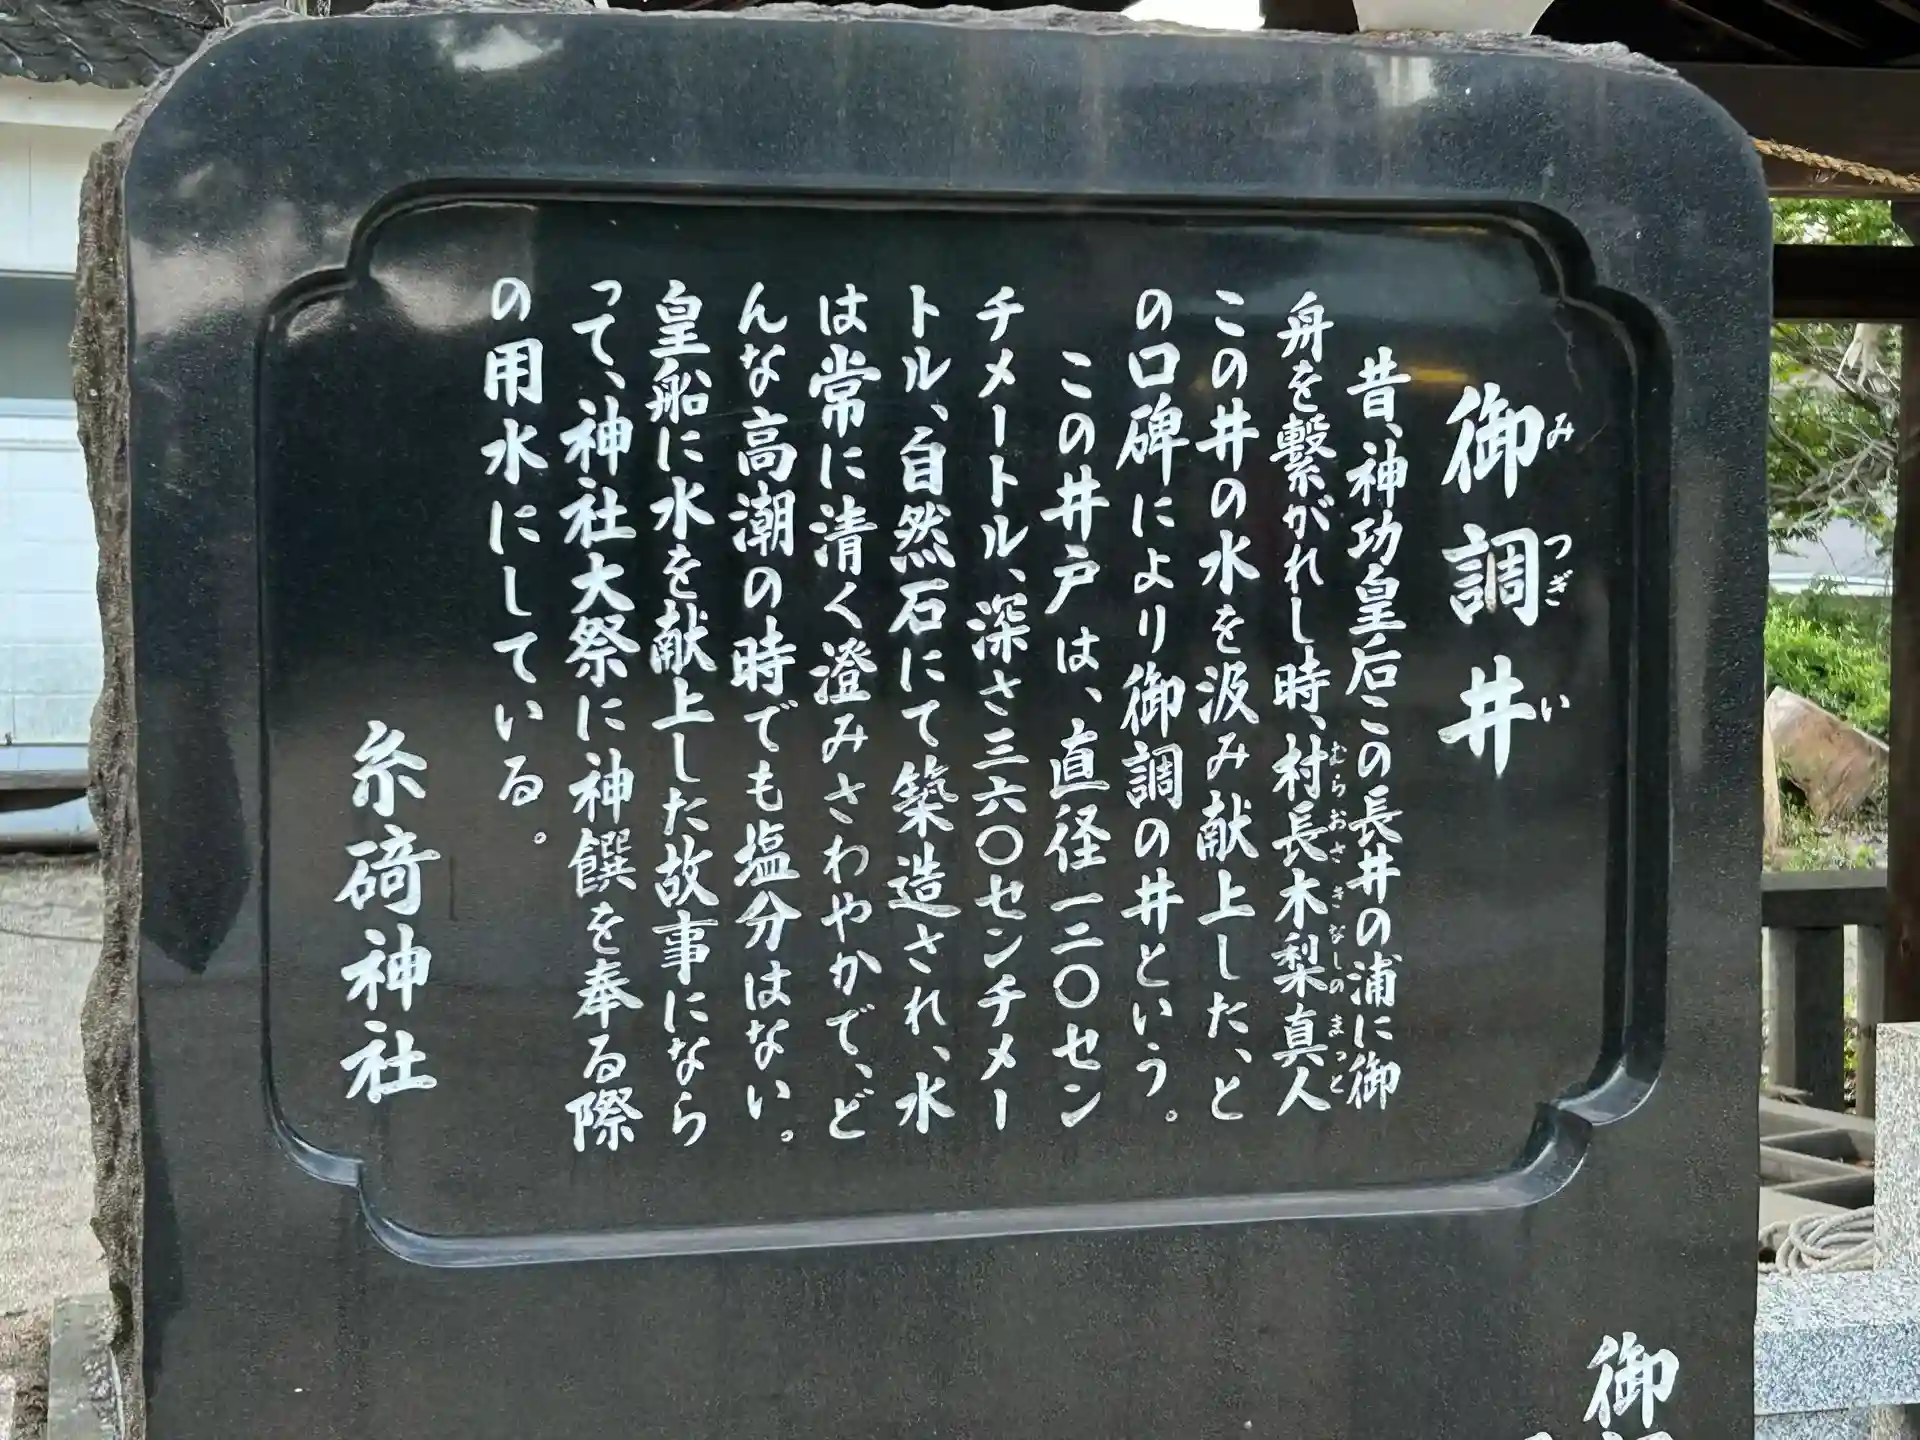 御調井
みつぎい
昔、神功皇后この長井の浦に御
舟を繋がれし時、村長木梨真人
むらおさきなしのまっと
この井の水を汲み献上した、と
の口碑により御調の井という。
この井戸は、直径一二〇セン
チメートル、深さ三六〇センチメー
トル、自然石にて築造され、水
は常に清く澄みさわやかで、ど
んな高潮の時でも塩分はない。
皇船に水を献上した故事になら
って、神社大祭に神饌を奉る際
の用水にしている。
糸碕神社
御